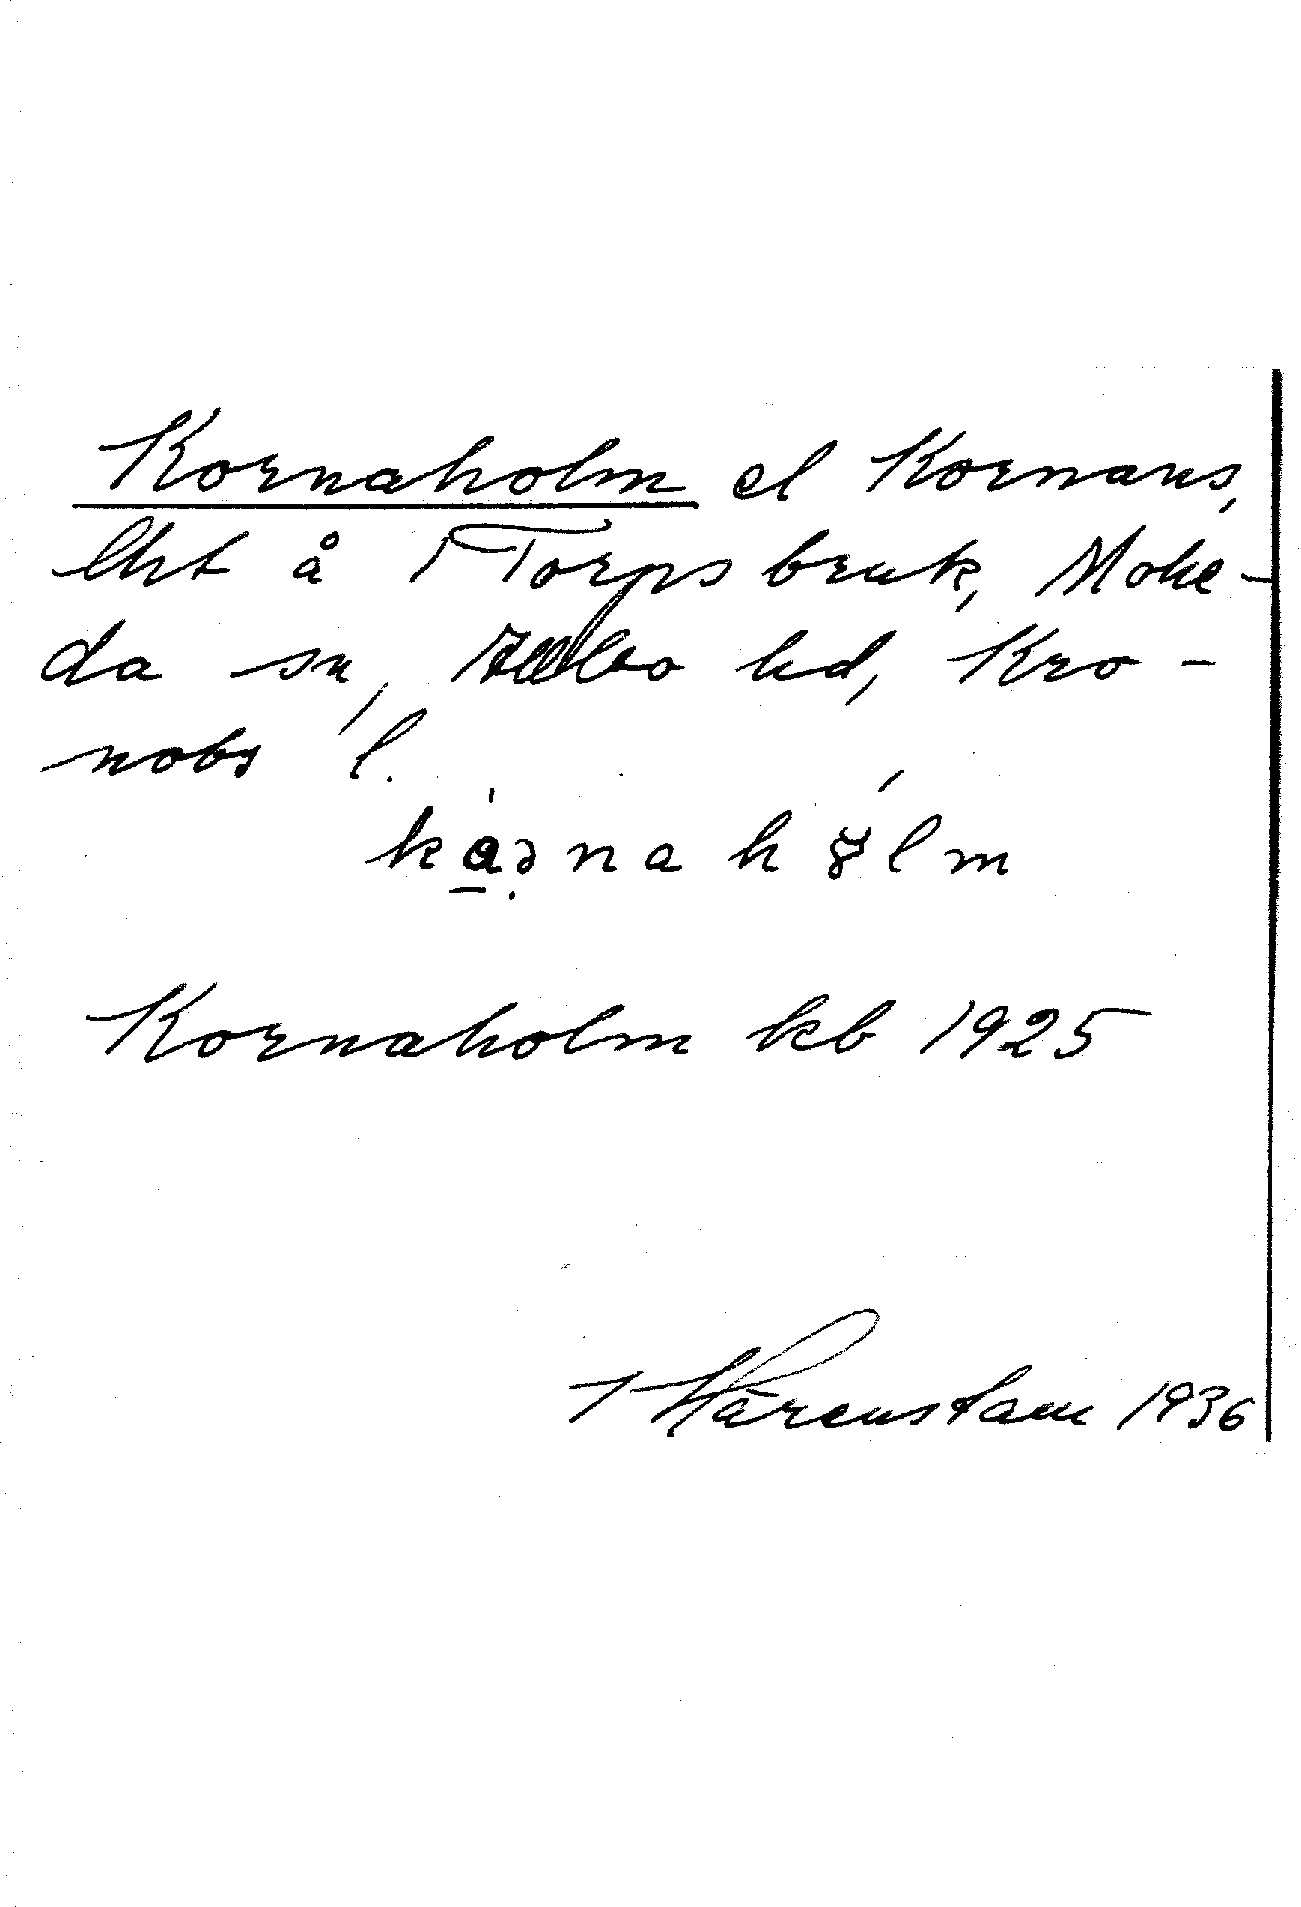 Kornaholm el Kornans,
lht å 1 Torpsbruk, Mohe-
da sn, Allbo hd, Kro-
nobs l.
kornahólm
Kornaholm kb 1925
T Härenstam 1936